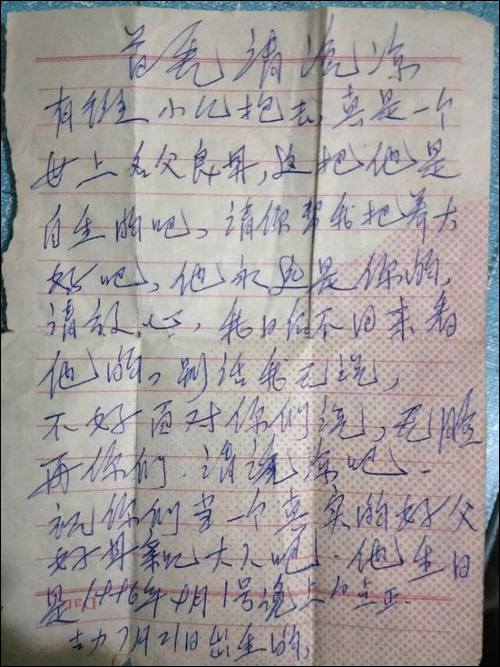 首先请谅
有 小 抱去,真是一个
世上 父良母,这把他是
自生的吧、请你帮我把养大
好吧,他永远是你的,
请放心,我日后不回来看
他的。别话我无说,
不好面对你们说,无脸
再你们.请谅吧.
祝你们当一个真实的好父
好母亲 大人吧.他生日
是1996年9月1号晚上
7月21日出生的,